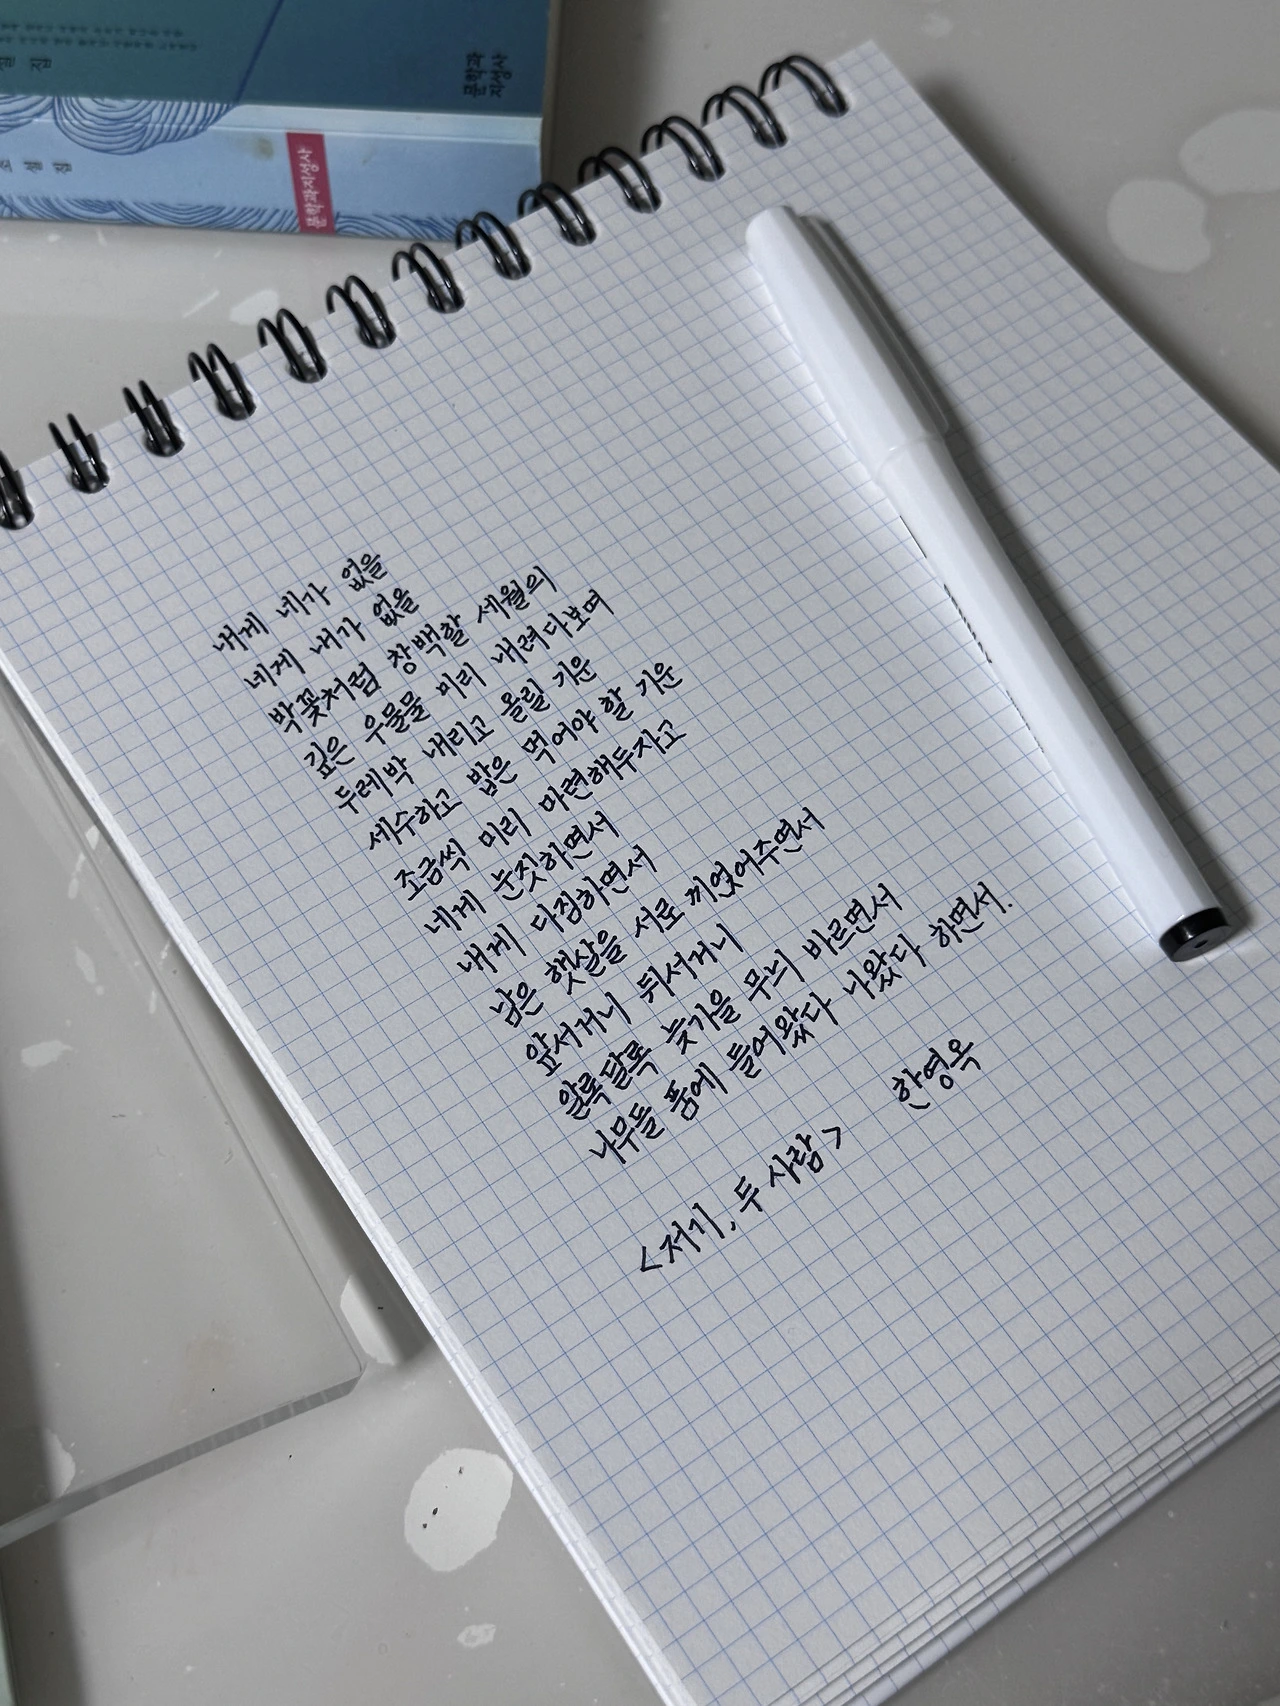 문학과
지성사
소설집
문학과지성사
내게 네가 없을
네게 내가 없을
박꽃처럼 창백할 세월의
깊은 우물물 미리 내려다보며
두레박 내리고 올릴 기운
세수하고 밥은 먹어야 할 기운
조금씩 미리 마련해두자고
네게 눈짓하면서
내게 다짐하면서
남은 햇살을 서로 끼얹어주면서
앞서거니 뒤서거니
알록달록 늦가을 무늬 바르면서
나무들 품에 들어왔다 나왔다 하면서.
<저기, 두 사람> 한영옥